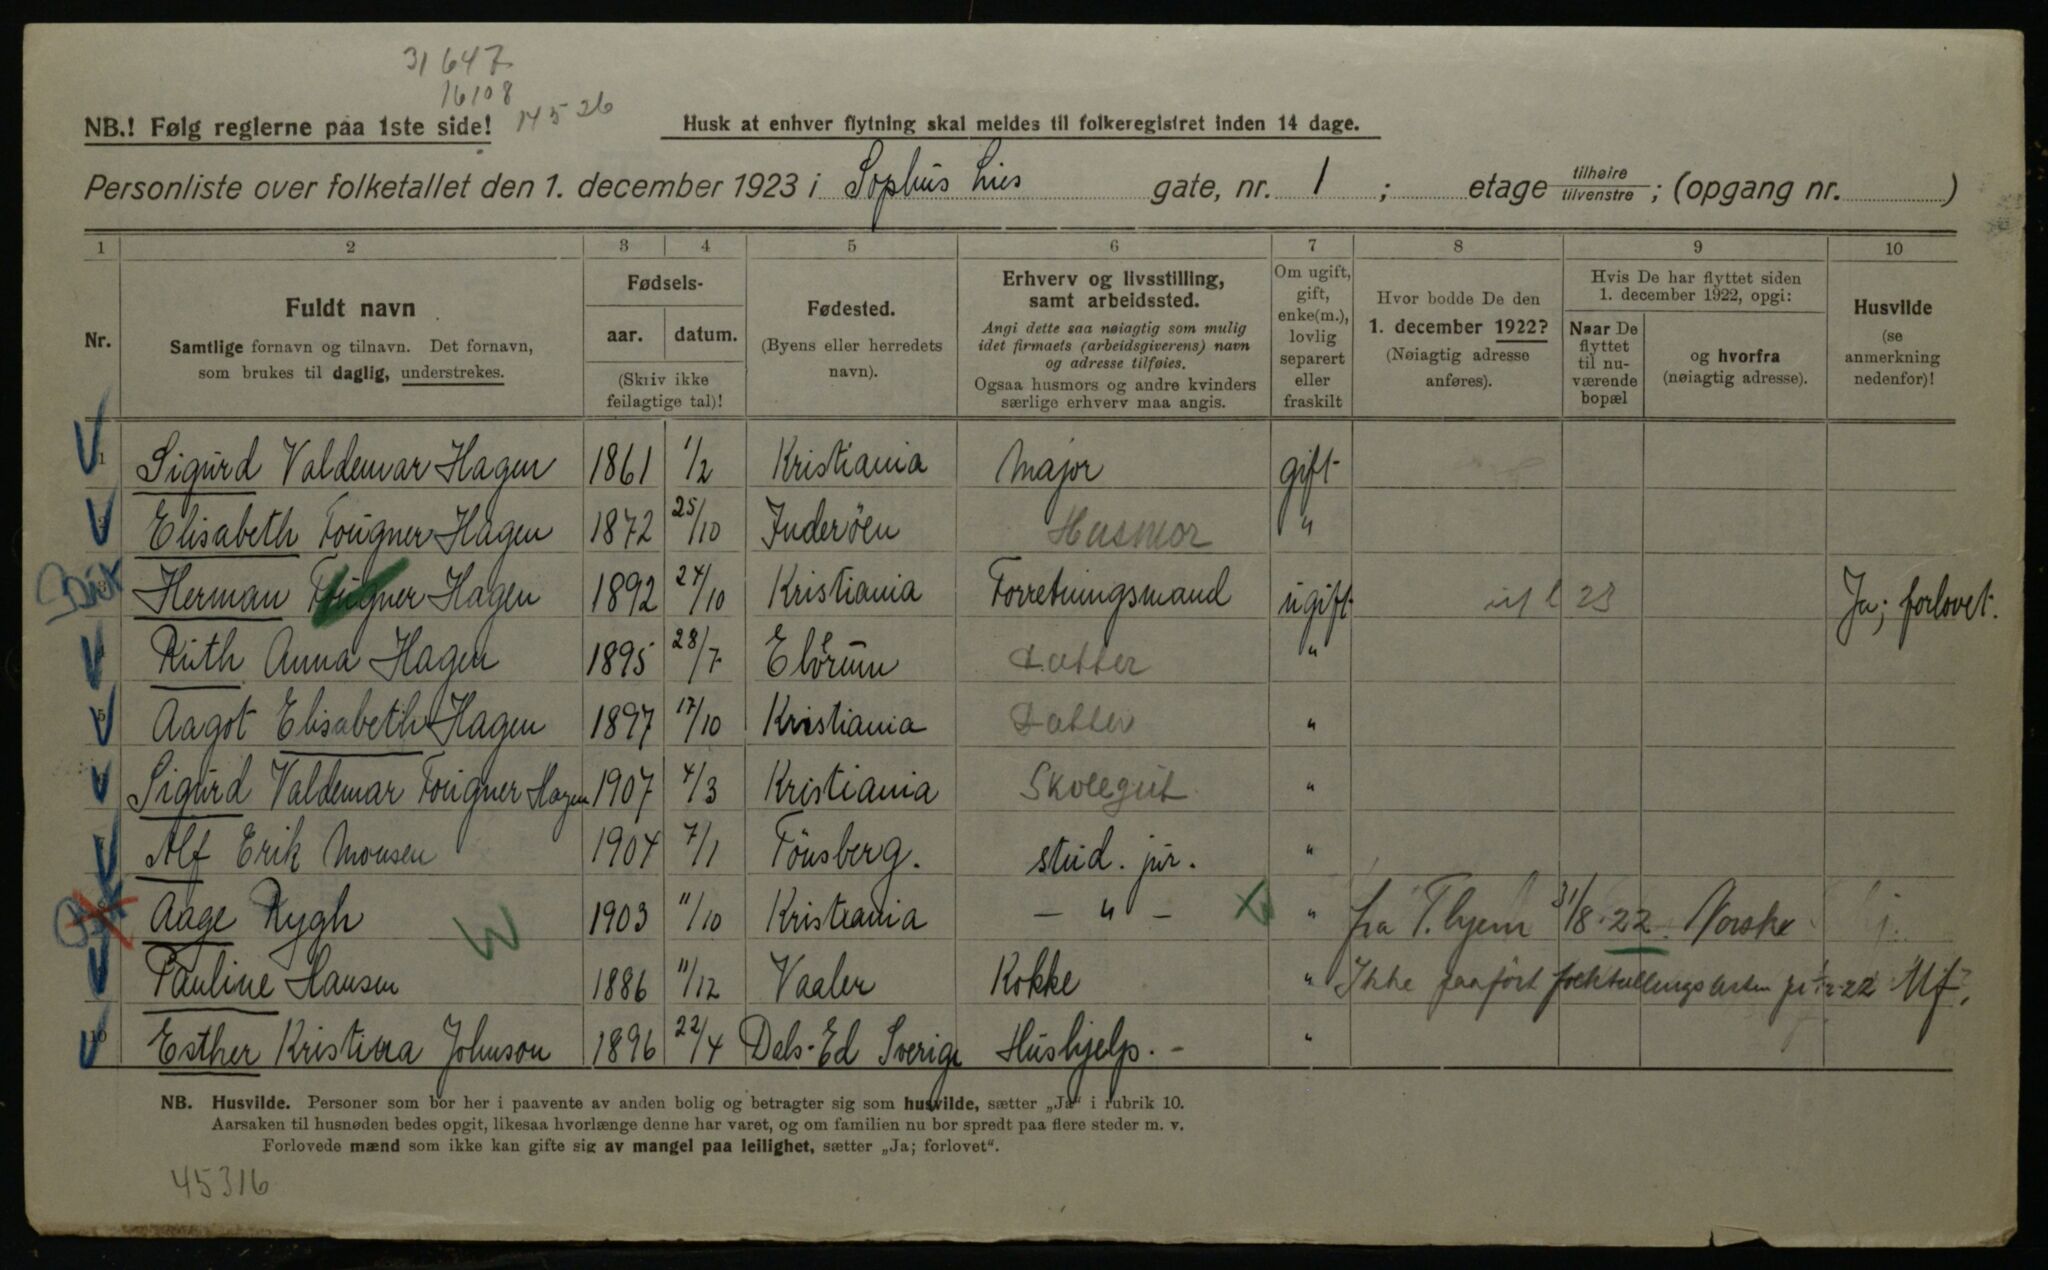 31647
16108
14526
NB.! Følg reglerne paa 1ste side!
Husk at enhver flytning skal meldes til folkeregistret inden 14 dage.
Personliste over folketallet den 1. december 1923 i Sophus Lies gate, nr. 1 ; etage tilhøire tilvenstre ; (opgang nr. )
1 2 3 4 5 6 7 8 9 10
Nr.
Fuldt navn
Samtlige fornavn og tilnavn. Det fornavn,
som brukes til daglig, understrekes.
Fødsels-
aar. datum.
(Skriv ikke
feilagtige tal)!
Fødested.
(Byens eller herredets
navn).
Erhverv og livsstilling,
samt arbeidssted.
Angi dette saa nøiagtig som mulig
idet firmaets (arbeidsgiverens) navn
og adresse tilføies.
Ogsaa husmors og andre kvinders
særlige erhverv maa angis.
Om ugift,
gift,
enke(m.),
lovlig
separert
eller
fraskilt
Hvor bodde De den
1. december 1922?
(Nøiagtig adresse
anføres).
Hvis De har flyttet siden
1. december 1922, opgi:
Naar De
flyttet
til nu-
værende
bopæl
og hvorfra
(nøiagtig adresse).
Husvilde
(se
anmerkning
nedenfor)!
1 Sigurd Valdemar Hagen 1861 1/2 Kristiania Major gift
Elisabeth Fougner Hagen 1872 25/10 Inderöen Husmor "
Herman Fougner Hagen 1892 24/10 Kristiania Forretningsmand ugift 23 Ja; forlovet.
Ruth Anna Hagen 1895 28/7 Elvrum Datter "
5 Aagot Elisabeth Hagen 1897 17/10 Kristiania Datter "
Sigurd Valdemar Fougner Hagen 1907 4/3 Kristiania Skolegut "
Alf Erik Monsen 1904 7/1 Tönsberg. stud. jur. "
Aage Rygh 1903 11/10 Kristiania — " — " fra T.hjem 31/8-22. Norske
Pauline Hansen 1886 11/12 Vaaler Kokke " Ikke paaført folketællingslisten pr 1/12-22 Mf.
Esther Kristina Johnson 1896 22/4 Dals-Ed Sverige Hushjelp. - "
NB. Husvilde. Personer som bor her i paavente av anden bolig og betragter sig som husvilde, sætter „Ja" i rubrik 10.
Aarsaken til husnøden bedes opgit, likesaa hvorlænge denne har varet, og om familien nu bor spredt paa flere steder m. v.
Forlovede mænd som ikke kan gifte sig av mangel paa leilighet, sætter „Ja; forlovet".
45316